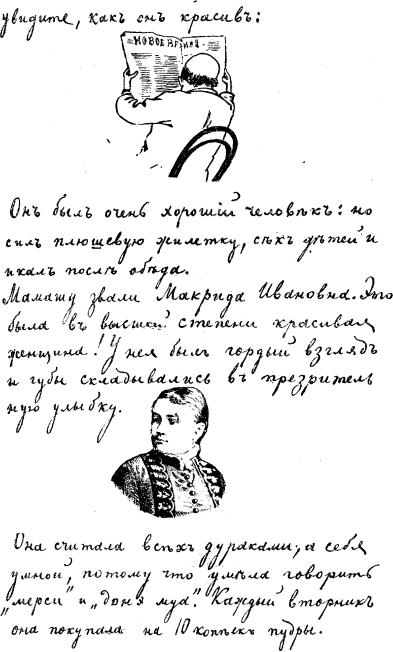 увидите, какъ онъ красивъ:
НОВОЕ ВРЕМЯ
Онъ былъ очень хорошій человѣкъ: но
силъ плюшевую жилетку, сѣкъ дѣтей и
икалъ послѣ обѣда.
Мамашу звали Макрида Ивановна. Это
была въ высшей степени красивая
женщина! У нея былъ гордый взглядъ
и губы складывались въ презритель
ную улыбку.
Она считала всѣхъ дураками, а себя
умной, потому что умѣла говорить
„мерси" и „доня муа". Каждый вторникъ
она покупала на 10 копѣекъ пудры.